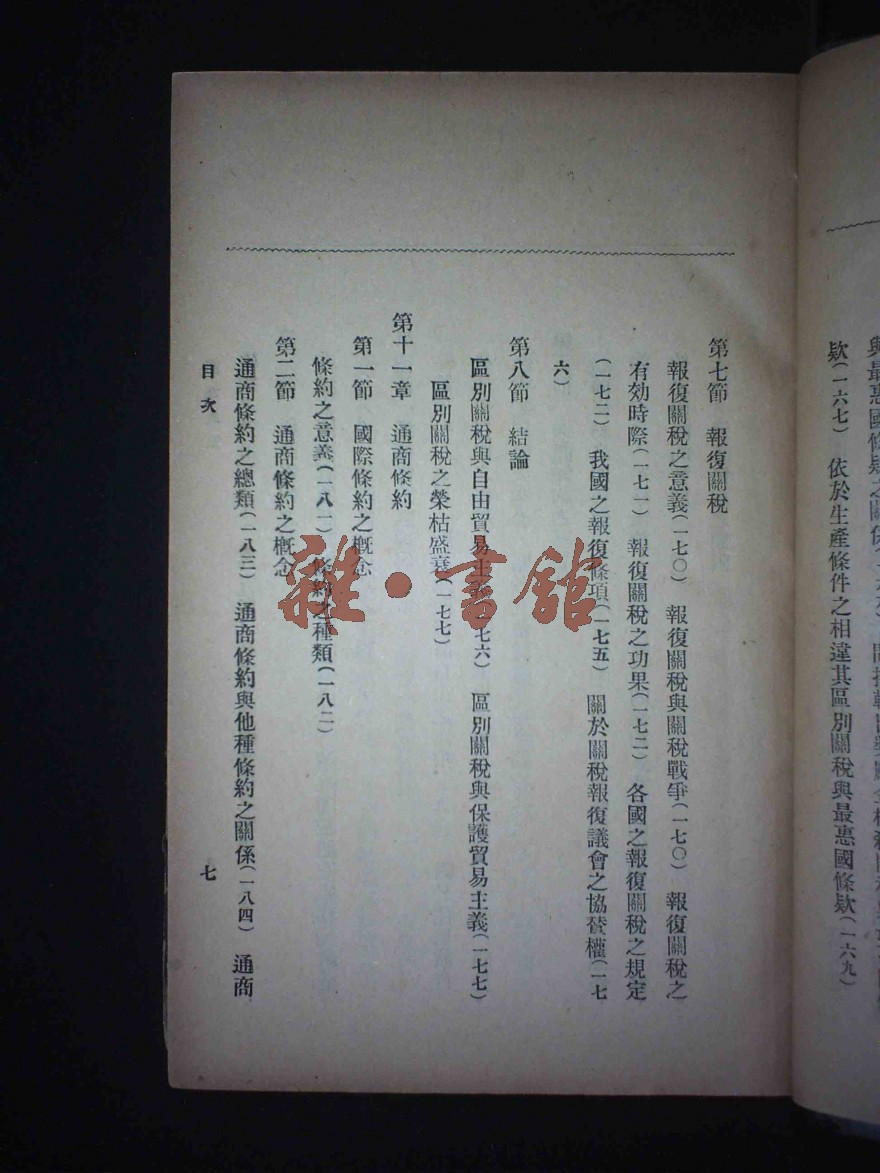 欵(一六七) 依於生產條件之相違其區別關稅與最惠國條欵(一六九)
第七節 報復關稅
報復關稅之意義(一七〇) 報復關稅與關稅戰爭(一七〇) 報復關稅之
有効時際(一七一) 報復關稅之功果(一七二) 各國之報復關稅之規定
(一七二) 我國之報復條項(一七五) 關於關稅報復議會之協贊權(一七
六)
第八節 結論
區別關稅與自由貿易主義(一七六) 區別關稅與保護貿易主義(一七七)
區別關稅之榮枯盛衰(一七七)
第十一章 通商條約
第一節 國際條約之概念
條約之意義(一八一) 條約之種類(一八二)
第二節 通商條約之概念
通商條約之總類(一八三) 通商條約與他種條約之關係(一八四) 通商
目次 七
雜·書館